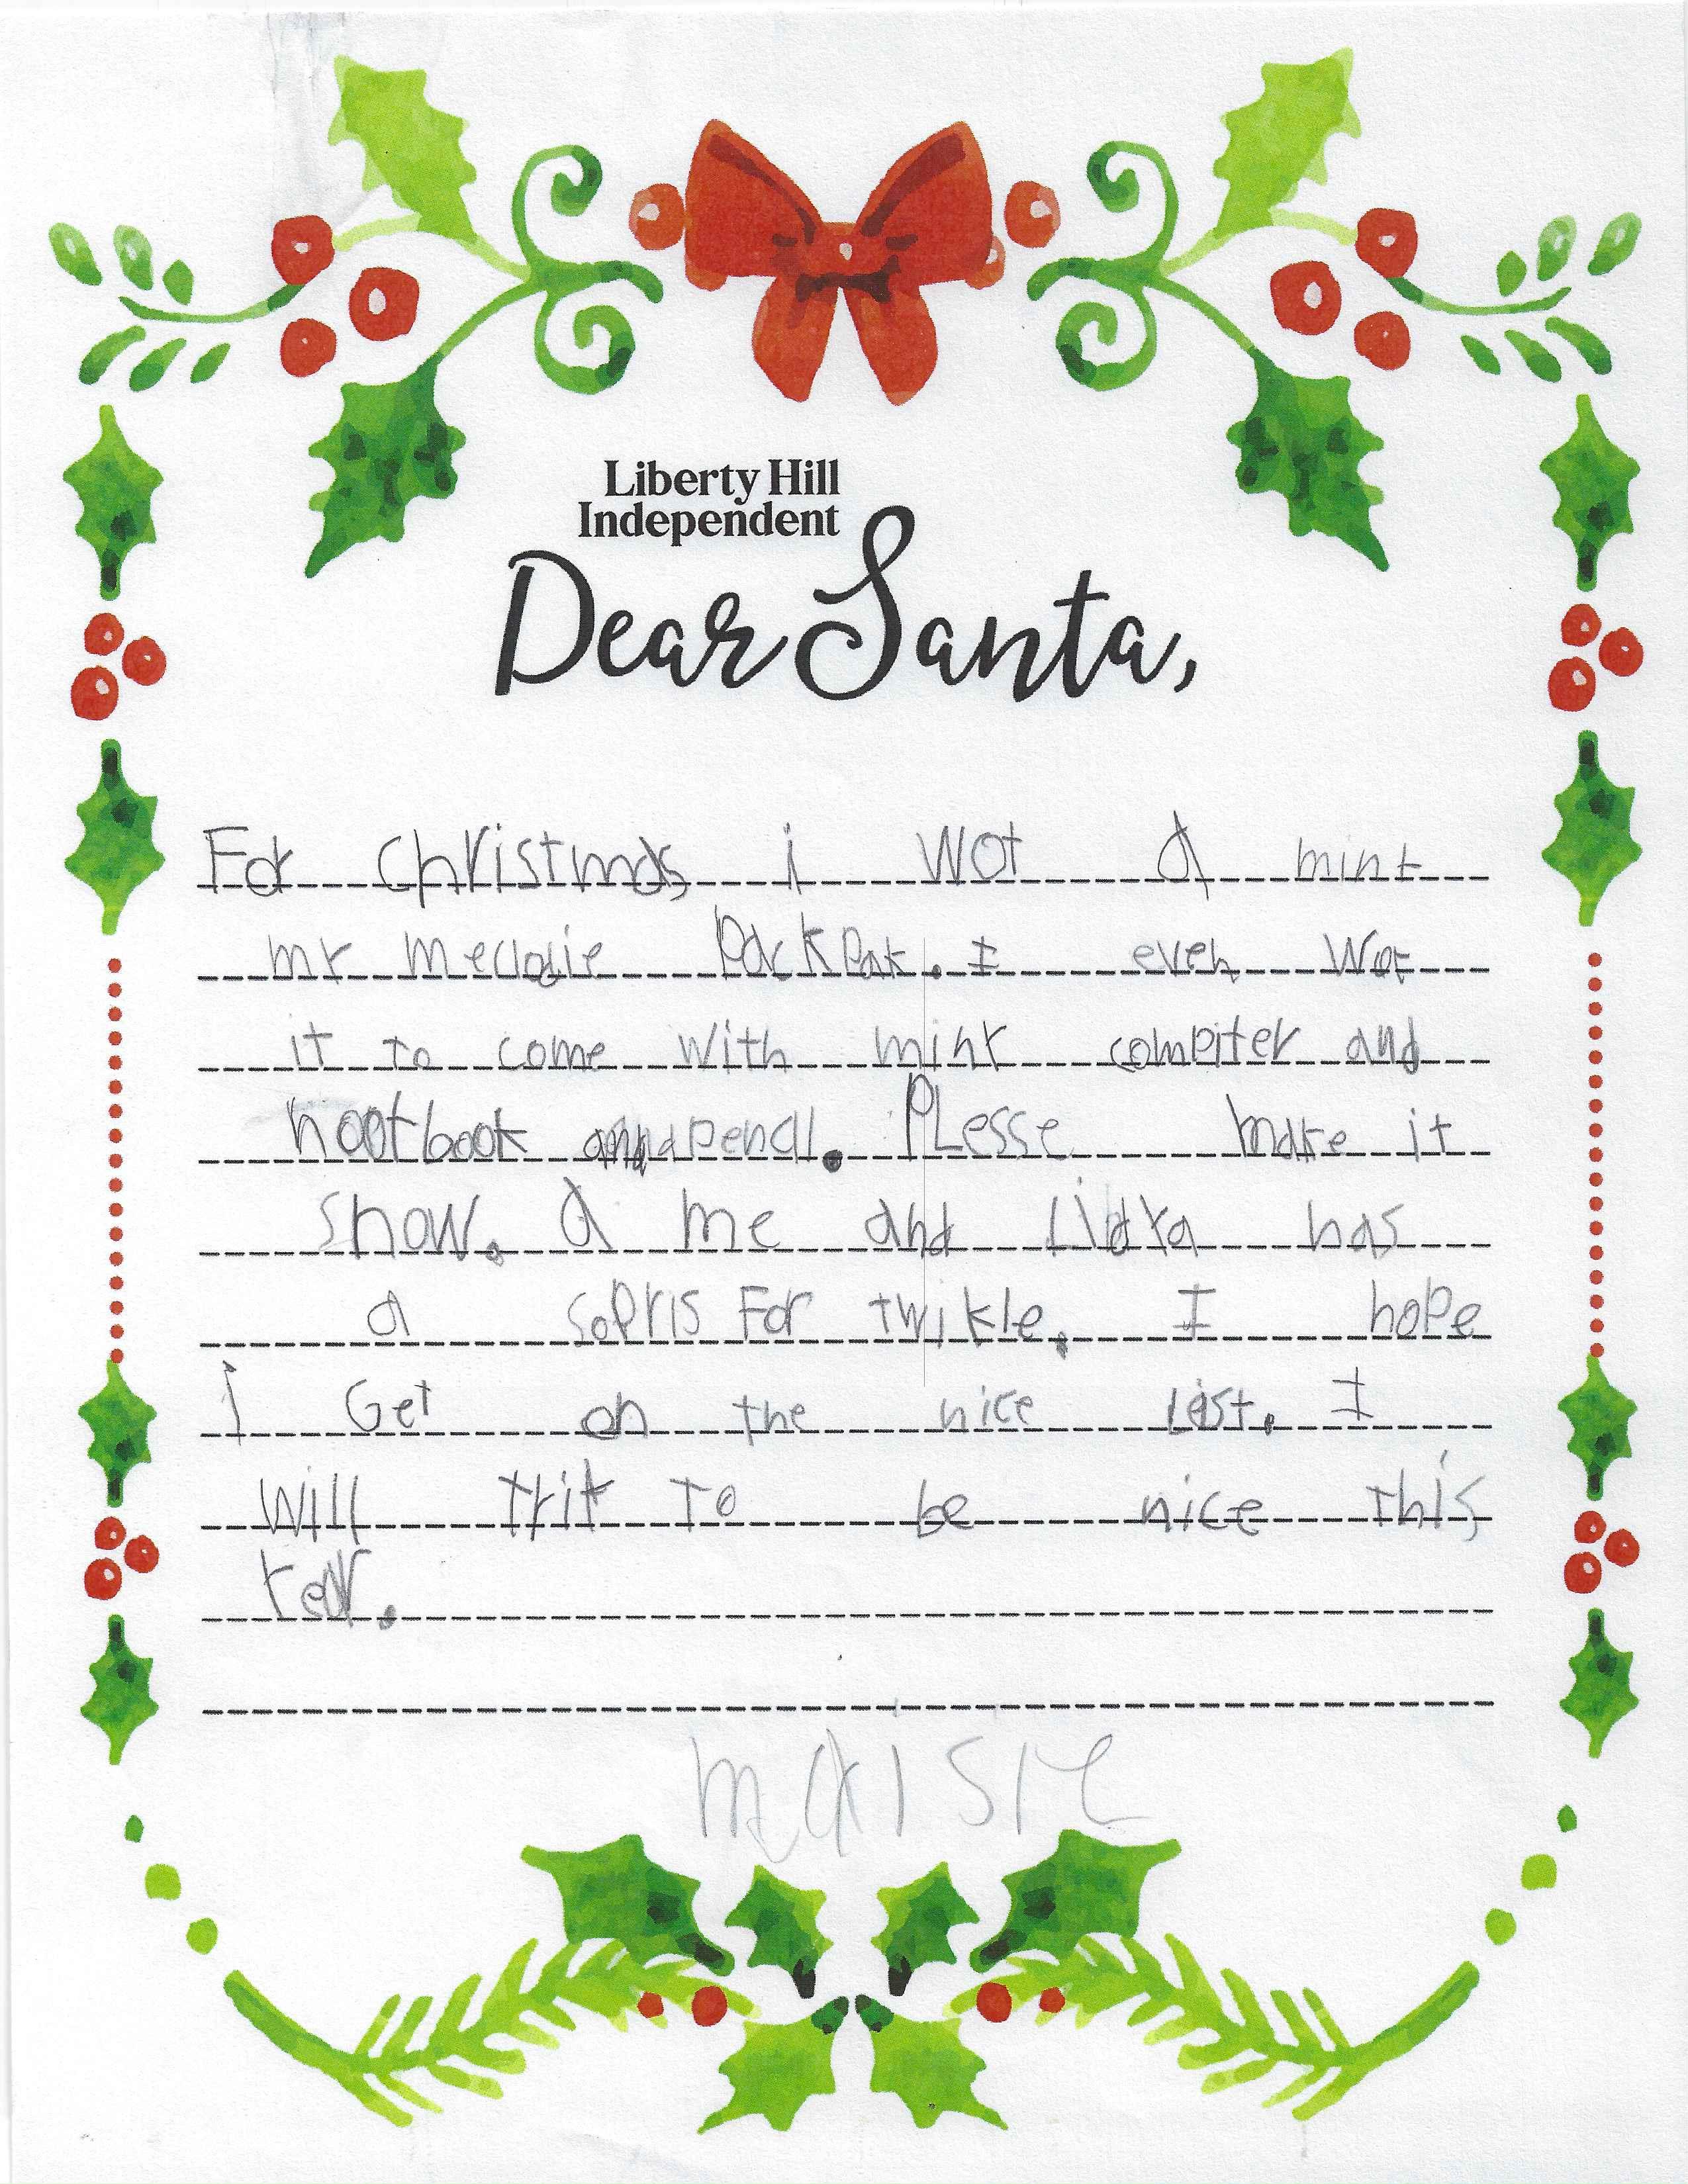 Liberty Hill
Independent
Dear Santa,
For Christmas i wot a mint
mr meclodie PackPak. I even wot
it to come with mint compiter and
nootbook and a pencil. PLesse make it
snow. a me and has
a soPris For twikle. I hope
I Get on the nice List. I
will trit to be nice this
year.
maisie